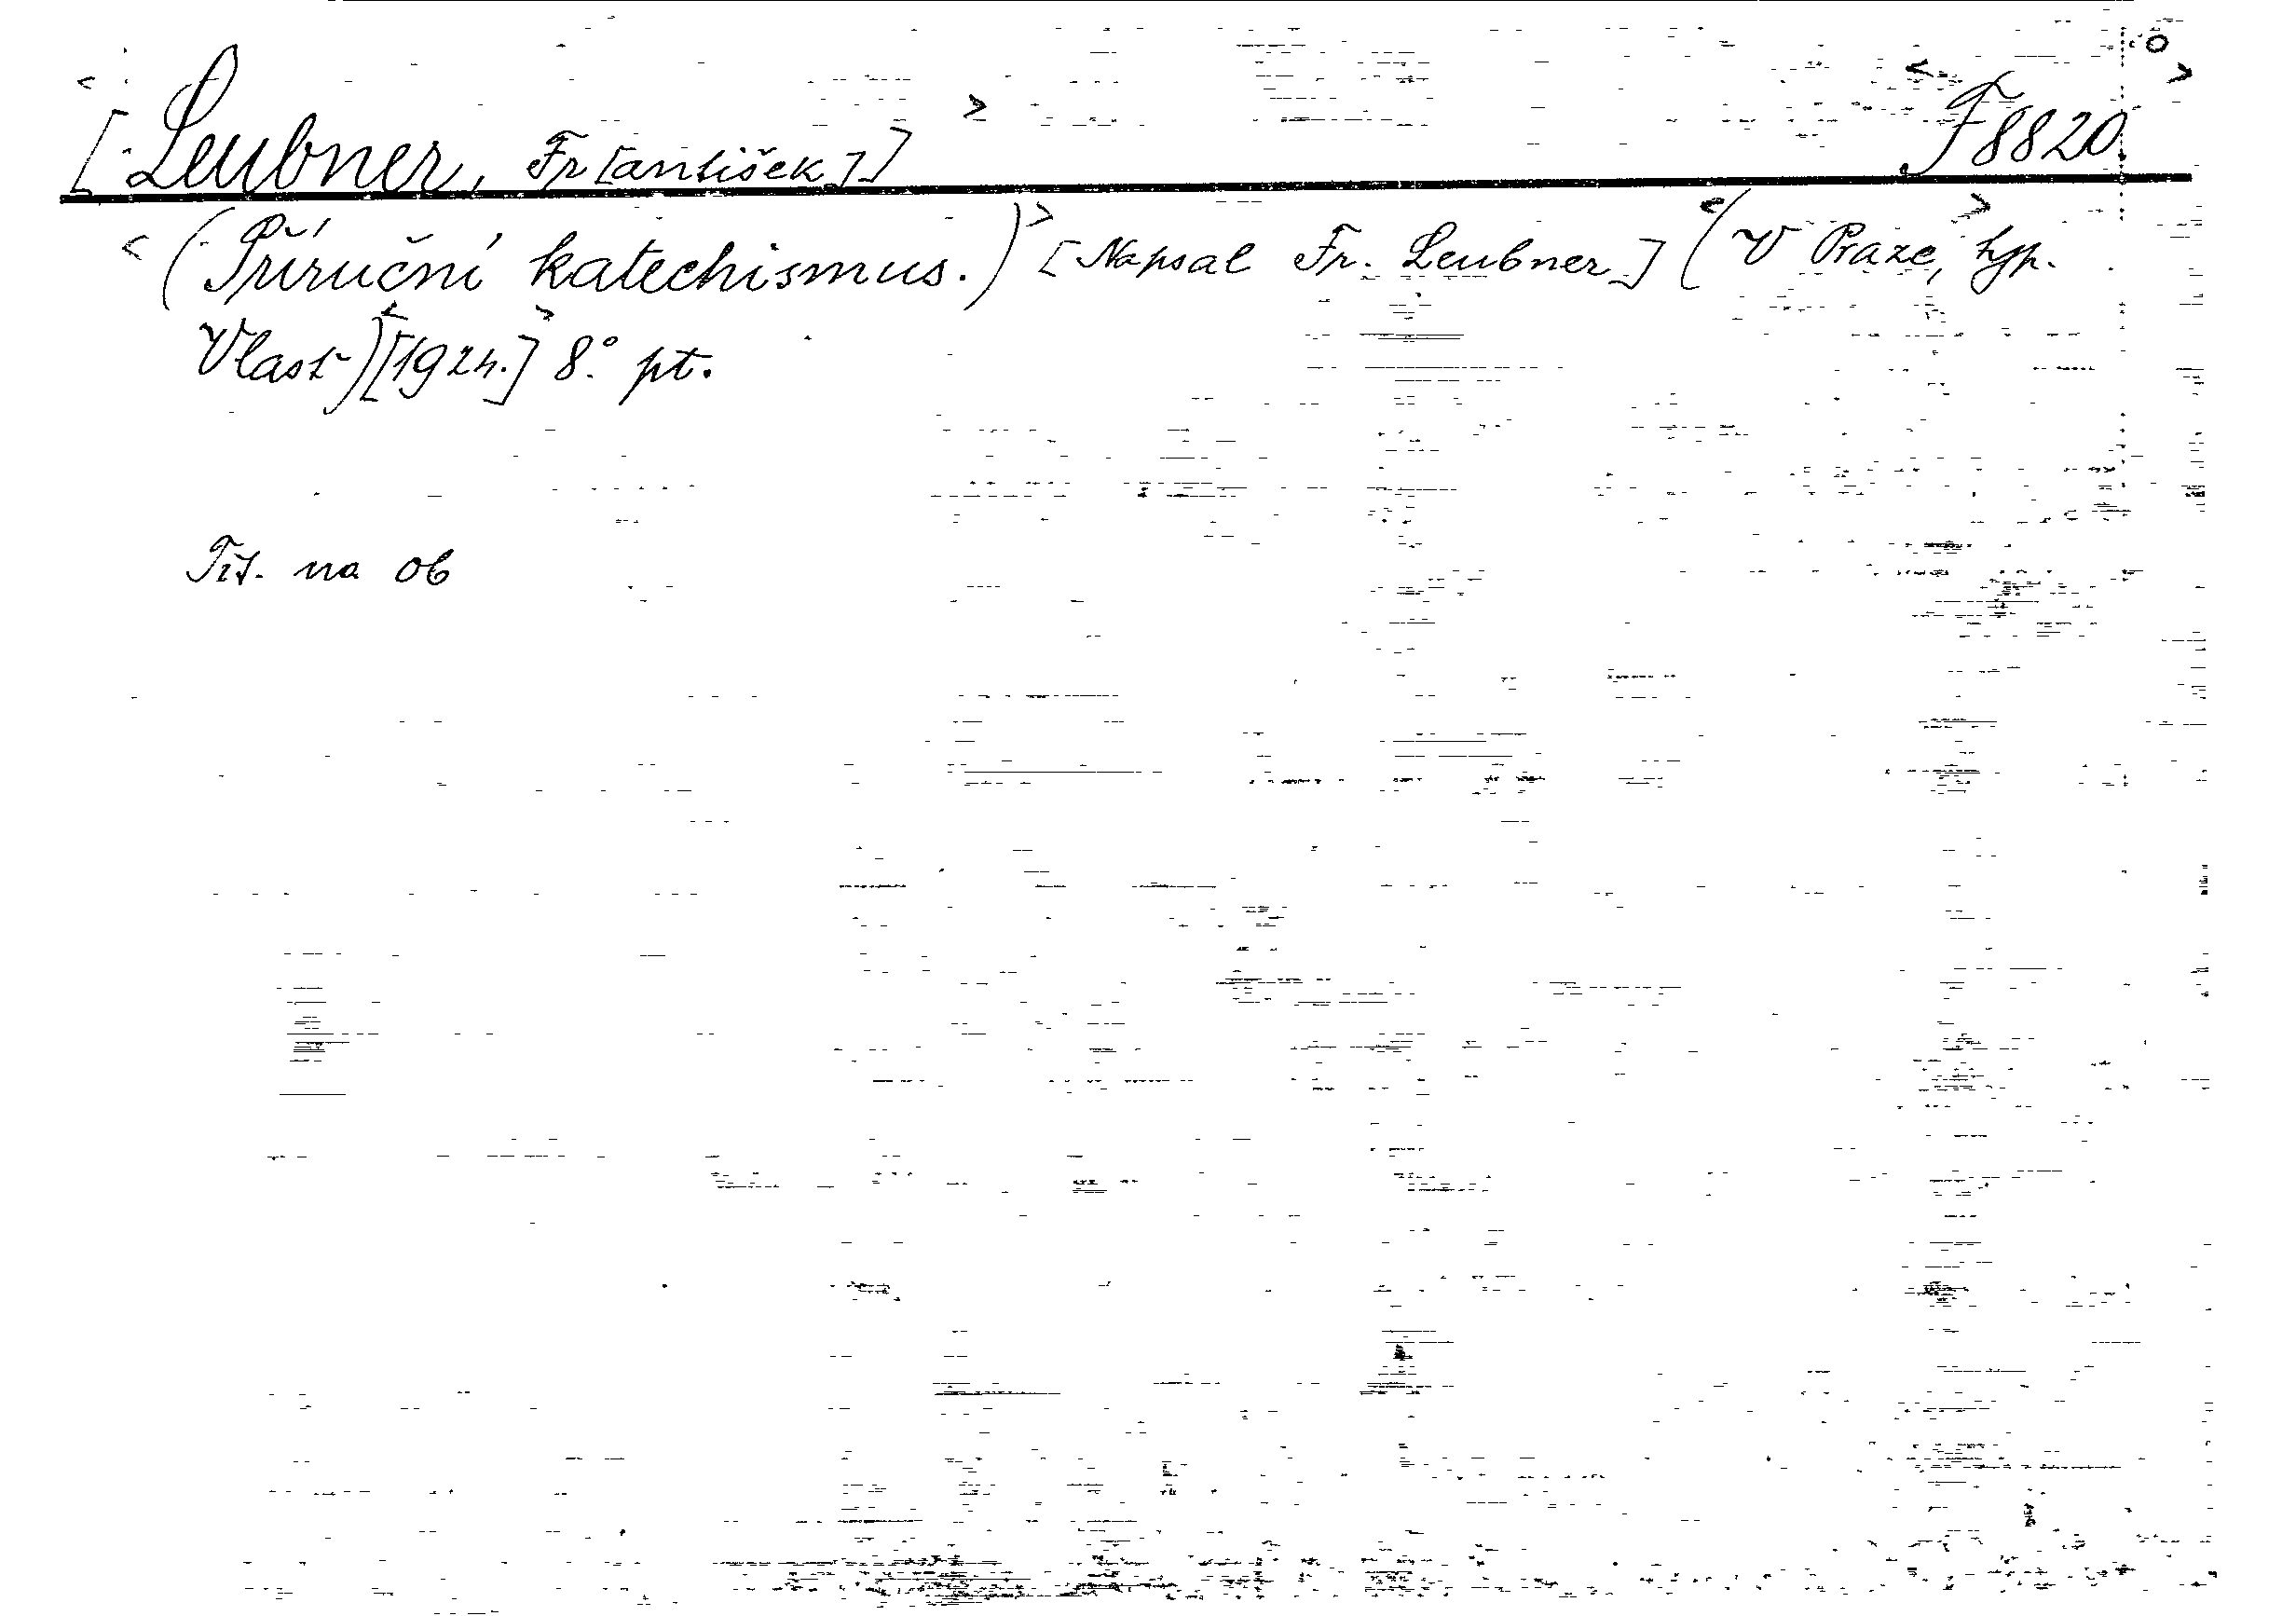 <[Leubner, Fr[antišek]]> <F 8820.°>
<(Příruční katechismus.)> [Napsal Fr. Leubner] <(V Praze,> typ.
Vlast)<[1924.]> 8.° pt.
Tit. na ob